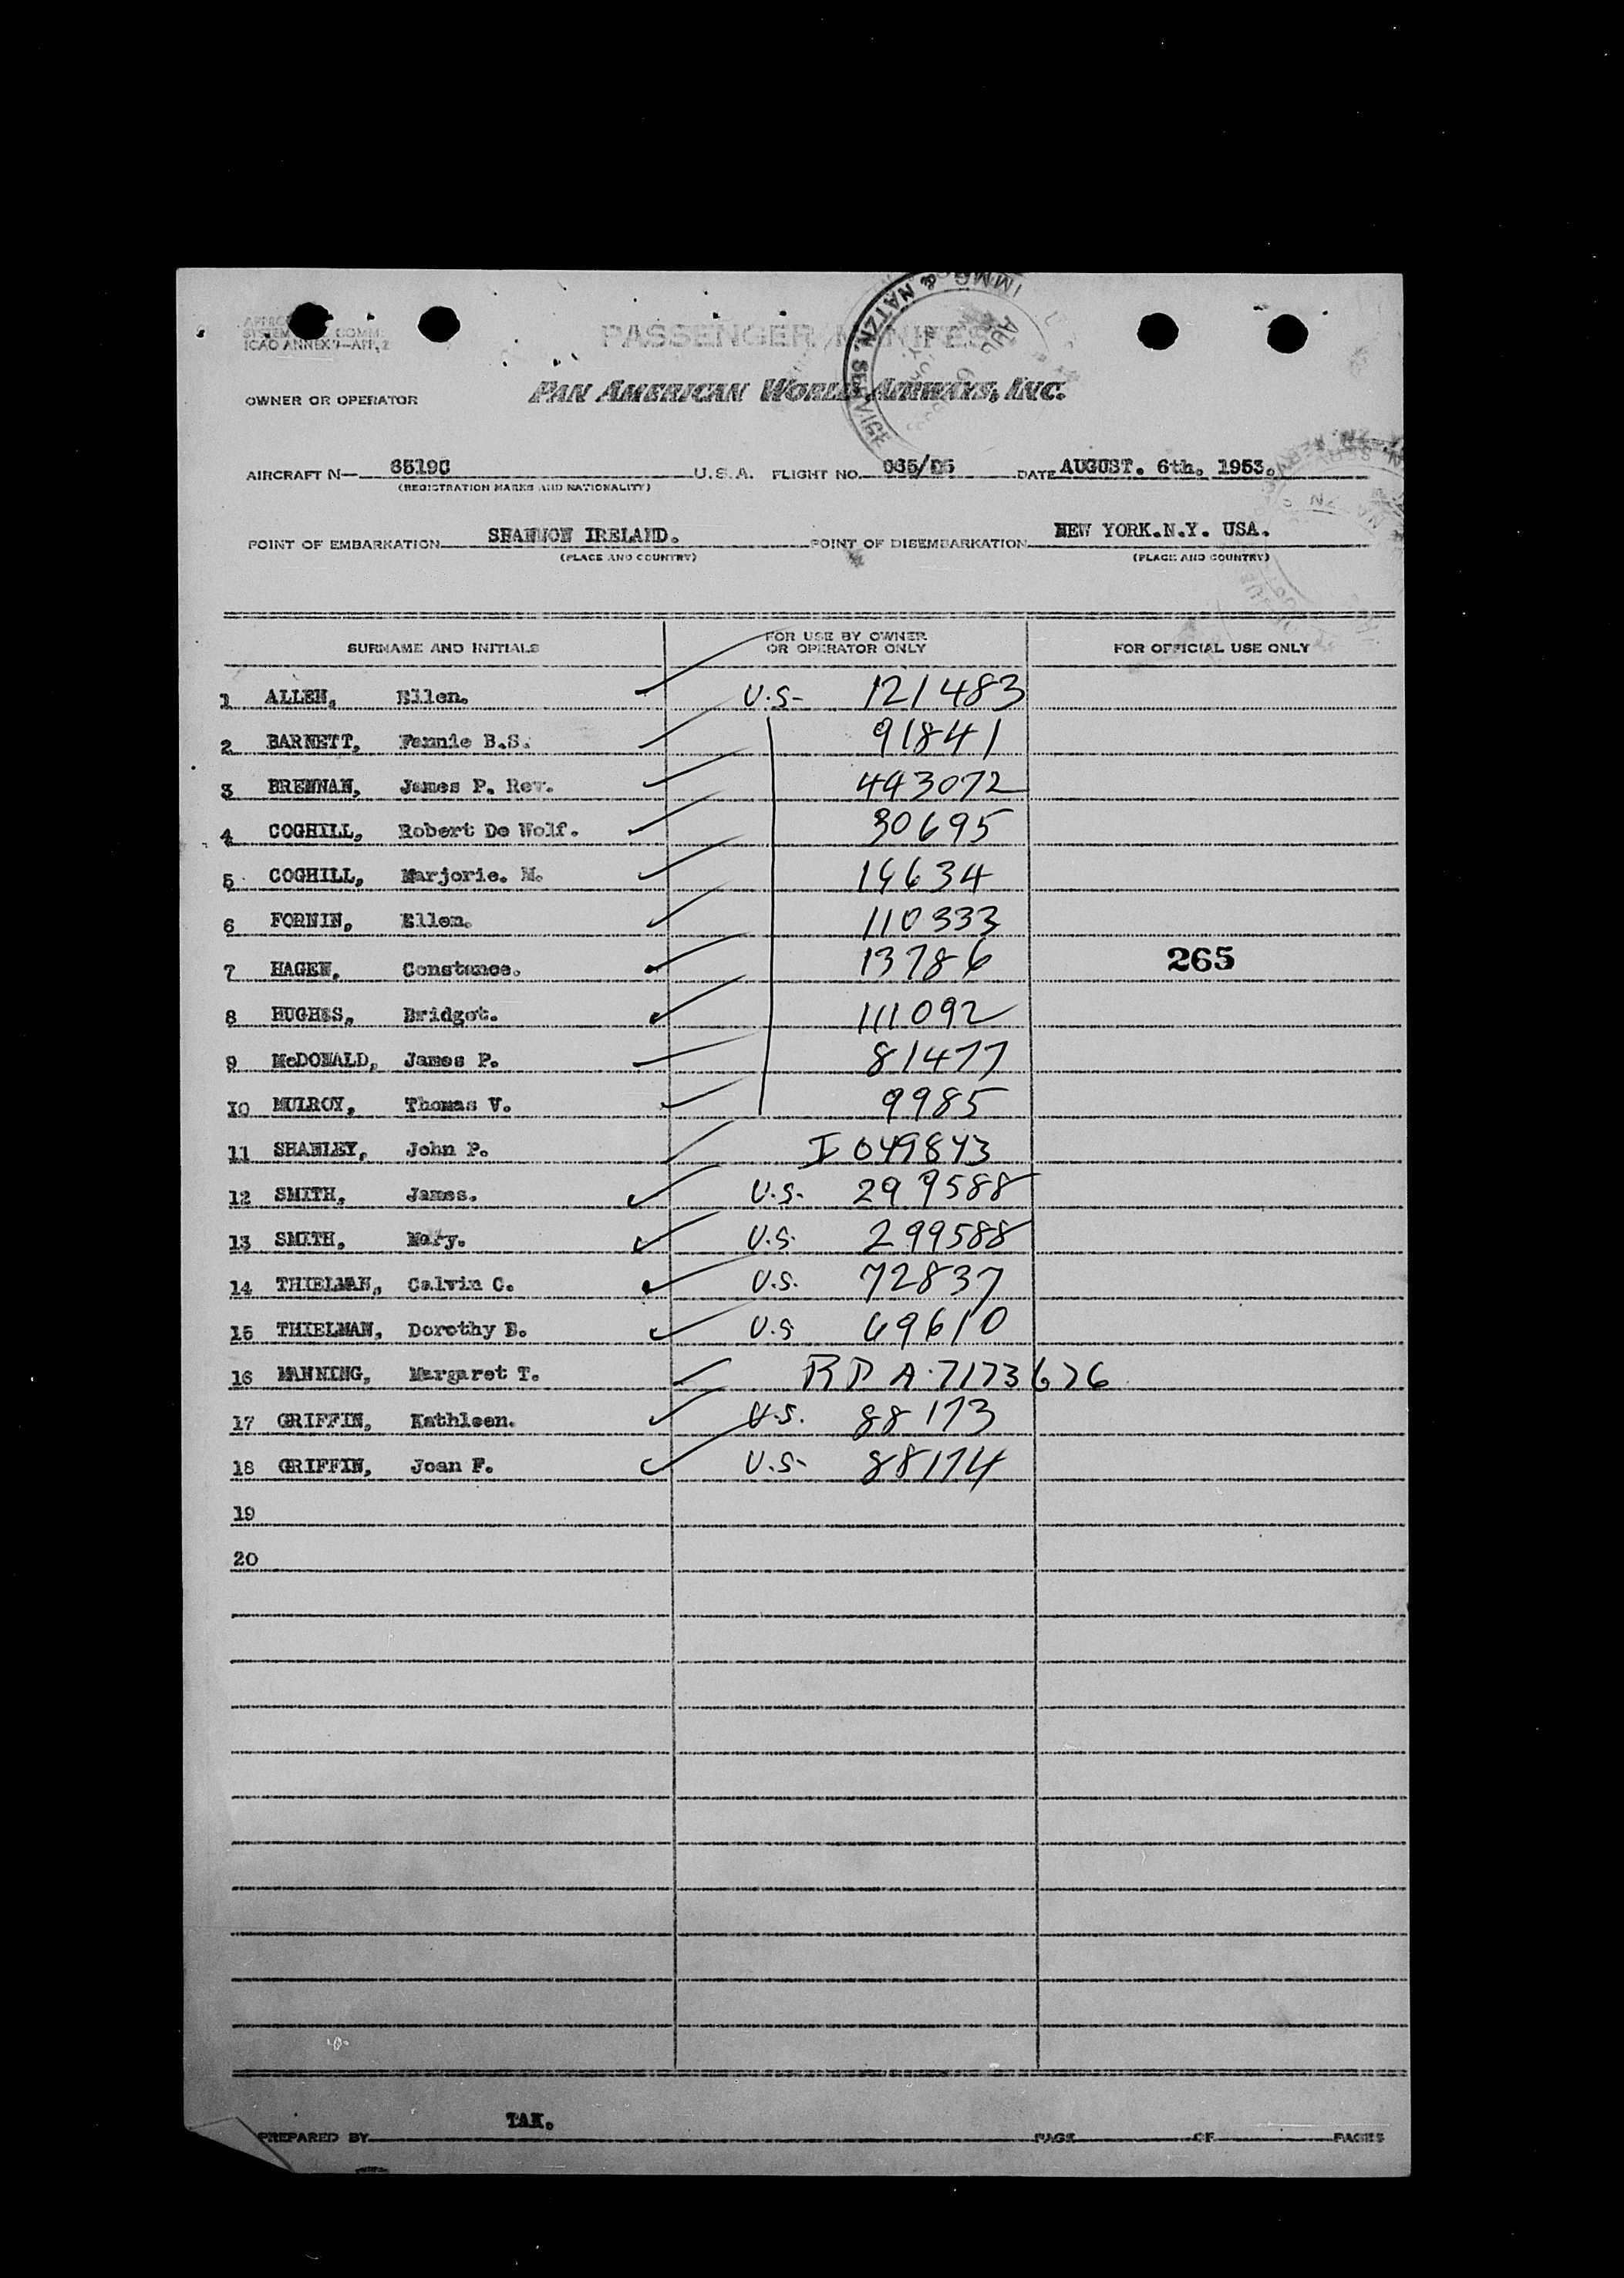 ICAO ANNEX 9—APP, 2
PASSENGER MANIFEST
OWNER OR OPERATOR PAN AMERICAN WORLD AIRWAYS, INC.
IMMG & NATZN. SERVICE
AUG 6
AIRCRAFT N— 6519C U.S.A. FLIGHT NO. 065/D5 DATE AUGUST. 6th. 1953.
(REGISTRATION MARKS AND NATIONALITY)
POINT OF EMBARKATION SHANNON IRELAND. POINT OF DISEMBARKATION NEW YORK.N.Y. USA.
(PLACE AND COUNTRY) (PLACE AND COUNTRY)
SURNAME AND INITIALS FOR USE BY OWNER OR OPERATOR ONLY FOR OFFICIAL USE ONLY
1 ALLEN, Ellen. U.S- 121483
2 BARNETT, Fannie B.S. 91841
3 BRENNAN, James P. Rev. 443072
4 COGHILL, Robert De Wolf. 30695
5 COGHILL, Marjorie. M. 14634
6 FORNIN, Ellen. 110333
7 HAGEN, Constance. 13786 265
8 HUGHES, Bridget. 111092
9 McDONALD, James P. 81477
10 MULROY, Thomas V. 9985
11 SHANLEY, John P. I 049843
12 SMITH, James. U.S. 299588
13 SMITH, Mary. U.S. 299588
14 THIELMAN, Calvin C. U.S. 72837
15 THIELMAN, Dorothy B. U.S 69610
16 MANNING, Margaret T. RP A-7173676
17 GRIFFIN, Kathleen. U.S. 88173
18 GRIFFIN, Joan F. U.S- 88174
19
20
PREPARED BY TAK. PAGE OF PAGES